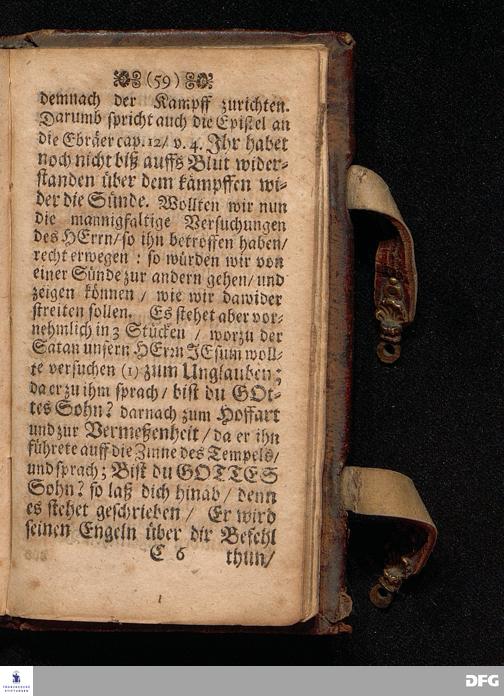 (59)
demnach der Kampff zurichten.
Darumb spricht auch die Epistel an
die Ebräer cap. 12/ v. 4. Jhr habet
noch nicht biß auffs Blut wider-
standen über dem kämpffen wi-
der die Sünde. Wollten wir nun
die mannigfaltige Versuchungen
des HErrn/ so ihn betroffen haben/
recht erwegen : so würden wir von
einer Sünde zur andern gehen/ und
zeigen können / wie wir dawider
streiten sollen. Es stehet aber vor-
nehmlich in 3 Stücken / worzu der
Satan unsern HErrn JEsum woll-
te versuchen (1) zum Unglauben;
da er zu ihm sprach/ bist du GOt-
tes Sohn? darnach zum Hoffart
und zur Vermeßenheit / da er ihn
führete auff die Zinne des Tempels/
und sprach; Bist du GOTTES
Sohn? so laß dich hinab / denn
es stehet geschrieben / Er wird
seinen Engeln über dir Befehl
C 6 thun/
FRANCKESCHE
STIFTUNGEN
DFG